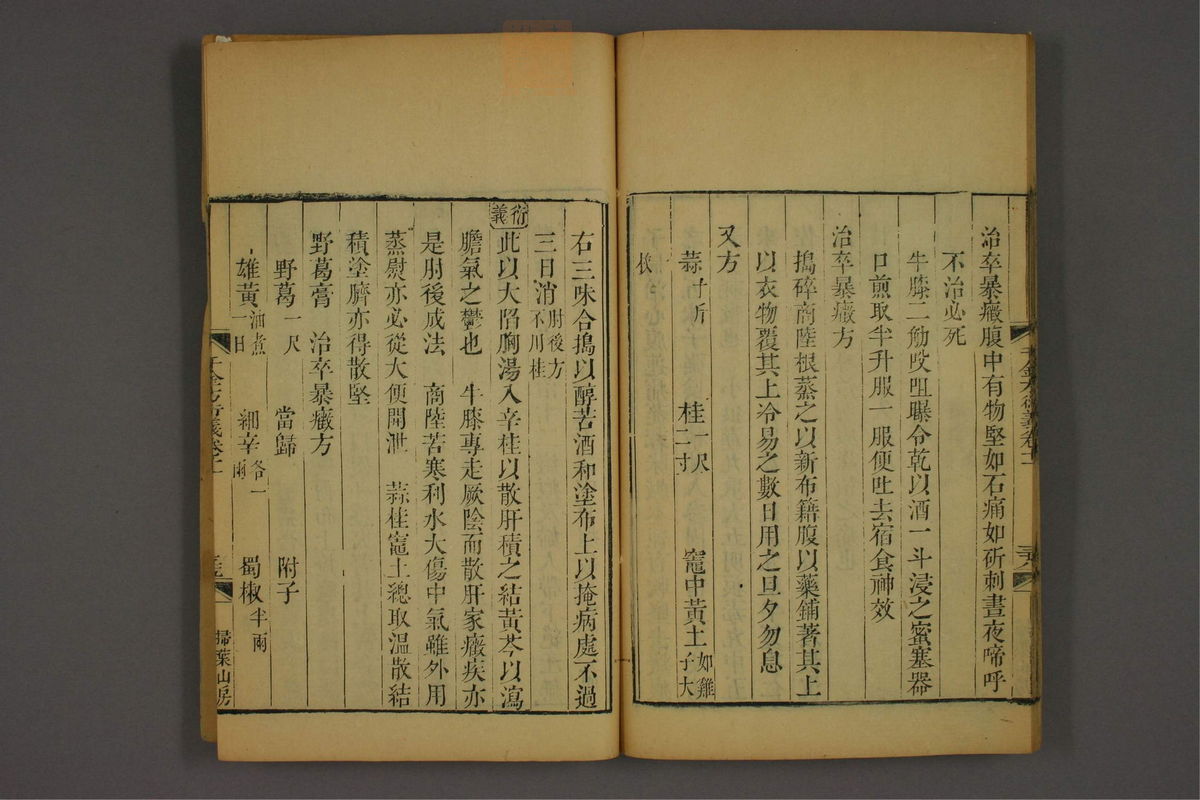 治卒暴癥腹中有物堅如石痛如斫刺晝夜啼呼
不治必死
牛膝二觔㕮咀曝令乾以酒一斗浸之蜜塞器
口煎取半升服一服便吐去宿食神效
治卒暴癥方
搗碎商陸根蒸之以新布籍腹以藥鋪著其上
以衣物覆其上冷易之數日用之旦夕勿息
又方
蒜十斤 桂一尺二寸 竈中黃土如雞子大
枚
右三味合搗以醇苦酒和塗布上以掩病處不過
三日消肘後方不用桂
衍義
此以大陷胸湯入辛桂以散肝積之結黃芩以瀉
膽氣之鬱也 牛膝專走厥陰而散肝家癥疾亦
是肘後成法 商陸苦寒利水大傷中氣雖外用
蒸熨亦必從大便開泄 蒜桂竈土總取溫散結
積塗臍亦得散堅
野葛膏 治卒暴癥方
野葛一尺 當歸 附子
雄黃油煮一日 細辛各一兩 蜀椒半兩
千金方衍義卷十一
掃葉山房